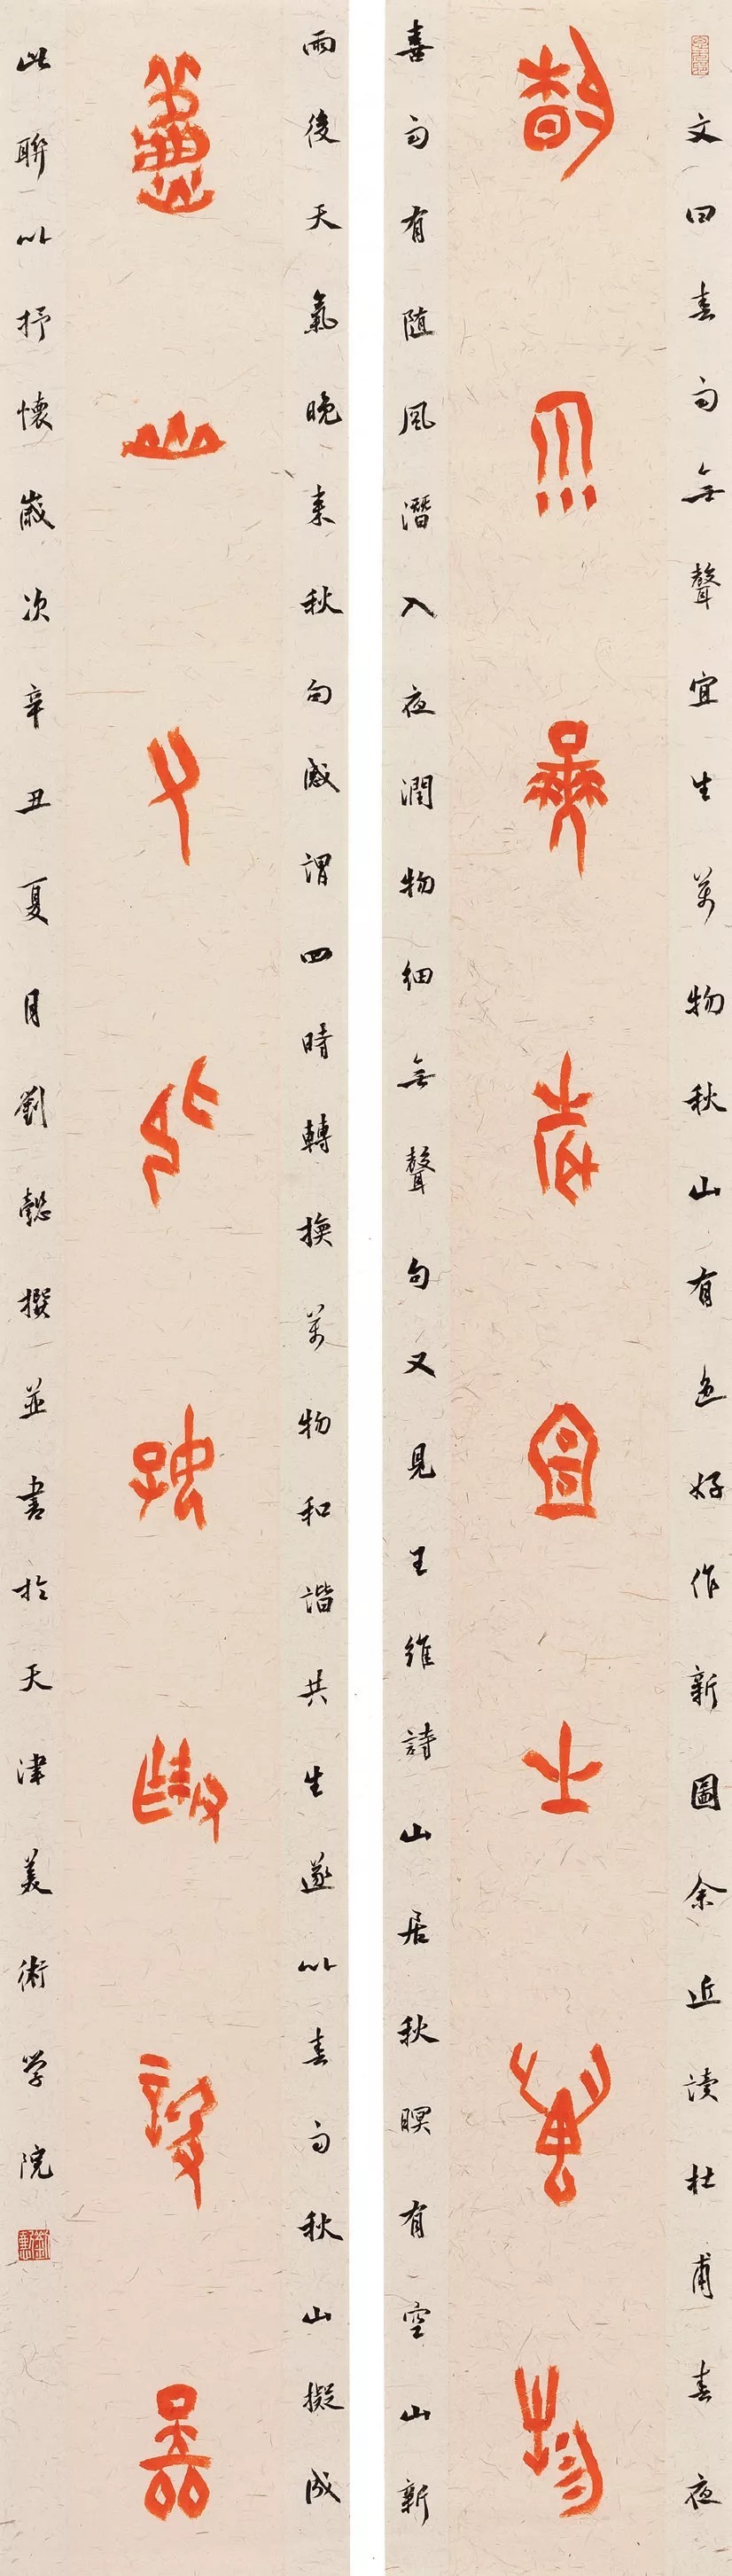 文曰春雨無聲宜生萬物秋山有色好作新圖余近讀杜甫春夜
春雨無聲宜生萬物
喜雨有随風潛入夜潤物細無聲句又見王維詩山居秋暝有空山新
雨後天氣晚來秋句感謂四時轉換萬物和諧共生遂以春雨秋山擬成
秋山有色好作新圖
此聯以抒懷歲次辛丑夏月劉懿撰並書於天津美術学院